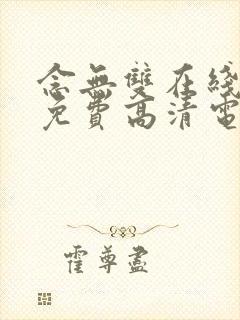 念無雙在綫
免費高清電
霍尊盡